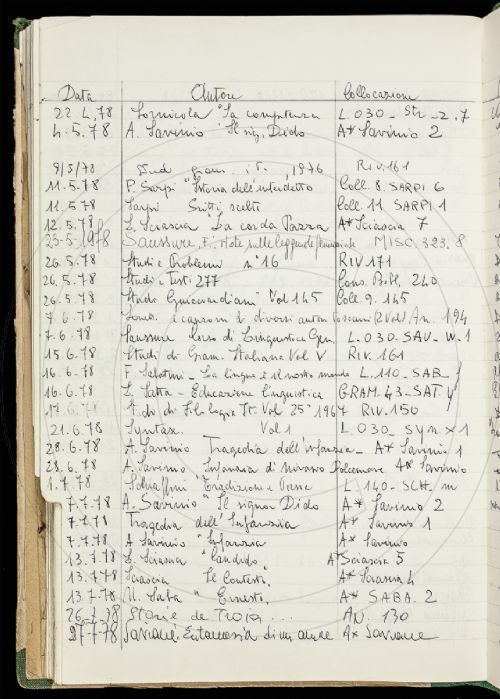 Data Autore Collocazione
22.4.78 Sornicola "La competenza L.030-Str-2.7
4.5.78 A. Savinio "Il sig. Dido A* Savinio 2
9/5/78 Stud gram. it. , 1976 Riv.161
11.5.78 P. Sarpi "Istoria dell'interdetto Coll. 8. SARPI 6
11.5.78 Sarpi Scritti scelti Coll. 11 SARPI 1
12.5.78 L. Sciascia "La corda Pazza A* Sciascia 7
23-5-1978 Saussure, F., Note sulle leggende germaniche MISC. 323.8
26.5.78 Studi e Problemi n° 16 RIV 171
26.5.78 Studi e Testi 277 Cons. Bibl. 240
26.5.78 "Studi Guicciardiani" Vol 145 Coll. 9. 145
7.6.78 e capitoli di diversi autori toscani 2 Vol An. 194
7.6.78 Saussure Corso di Linguistica Gen. L.030-SAU-W.1
15.6.78 Studi di Gram. Italiana Vol V Riv. 161
16.6.78 F. Sabatini - La lingua e il nostro mondo L.110-SAB-1
16.6.78 L. Satta - Educazione linguistica GRAM.43-SAT.4
17.6.78 St. di di Filologia It. Vol 25° 1967 RIV.150
21.6.78 Syntax. Vol 1 L.030-Syn x 1
28.6.78 A. Savinio Tragedia dell'infanzia - A* Savinio 1
28.6.78 A. Savinio Infanzia di Nivasio Dolcemare A* Savinio
1.7.78 Schiaffini "Tradizione e Poesia L 140-SCH. m
7.7.78 A. Savinio "Il signor Dido A* Savinio 2
7.7.78 Tragedia dell'Infanzia A* Savinio 1
7.7.78 A Savinio "Infanzia A* Savinio
13.7.78 L. Sciascia "Candido A* Sciascia 5
13.7.78 Sciascia Il Contesto. A* Sciascia 4
13.7.78 U. Saba " Ernesto. A* SABA. 2
26.7.78 Storie de Troia... AN. 130
27.7.78 Saviane. Eutanasia di un amore A* Saviane